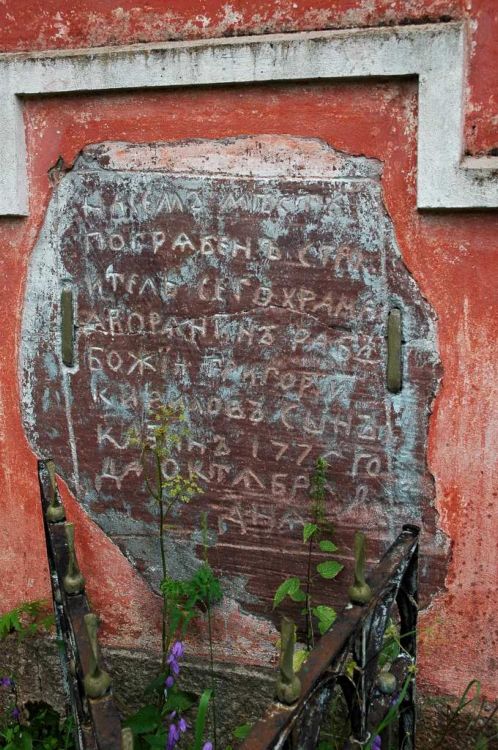 НАСЕМЪ МѢСТѢ
ПОГРАБЕНЪ СТРО
ИТЕЛЬ СЕГО ХРАМА
ДВОРАНИНЪ РАБЪ
БОЖIИ ГРИГОРЕИ
КИРИЛОВЪ СЫНЪ
ГО
ДА ОКТАБРА
ДНА